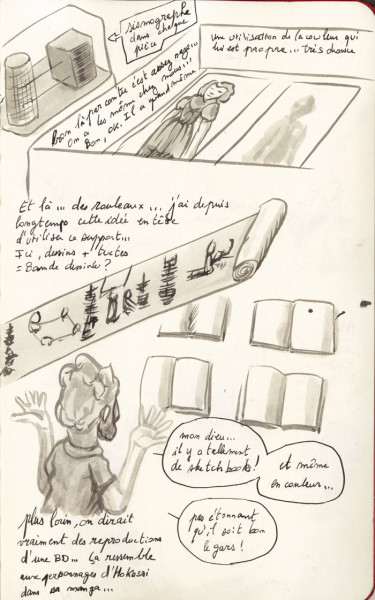 sismographe
dans chaque
pièce
une utilisation de la couleur qui
lui est propre... très douce
Bon là par contre c'est assez naze...
On a les même chez nous...
Bon, ok. Il a quand même
Et là... des rouleaux... j'ai depuis
longtemps cette idée en tête
d'utiliser ce support...
Ici, dessins + textes
= Bande dessinée ?
mon dieu...
il y a tellement
de sketchbooks !
et même
en couleur...
pas étonnant
qu'il soit bon
le gars !
plus loin, on dirait
vraiment des reproductions
d'une BD... ça ressemble
aux personnages d'Hokusai
dans sa manga...